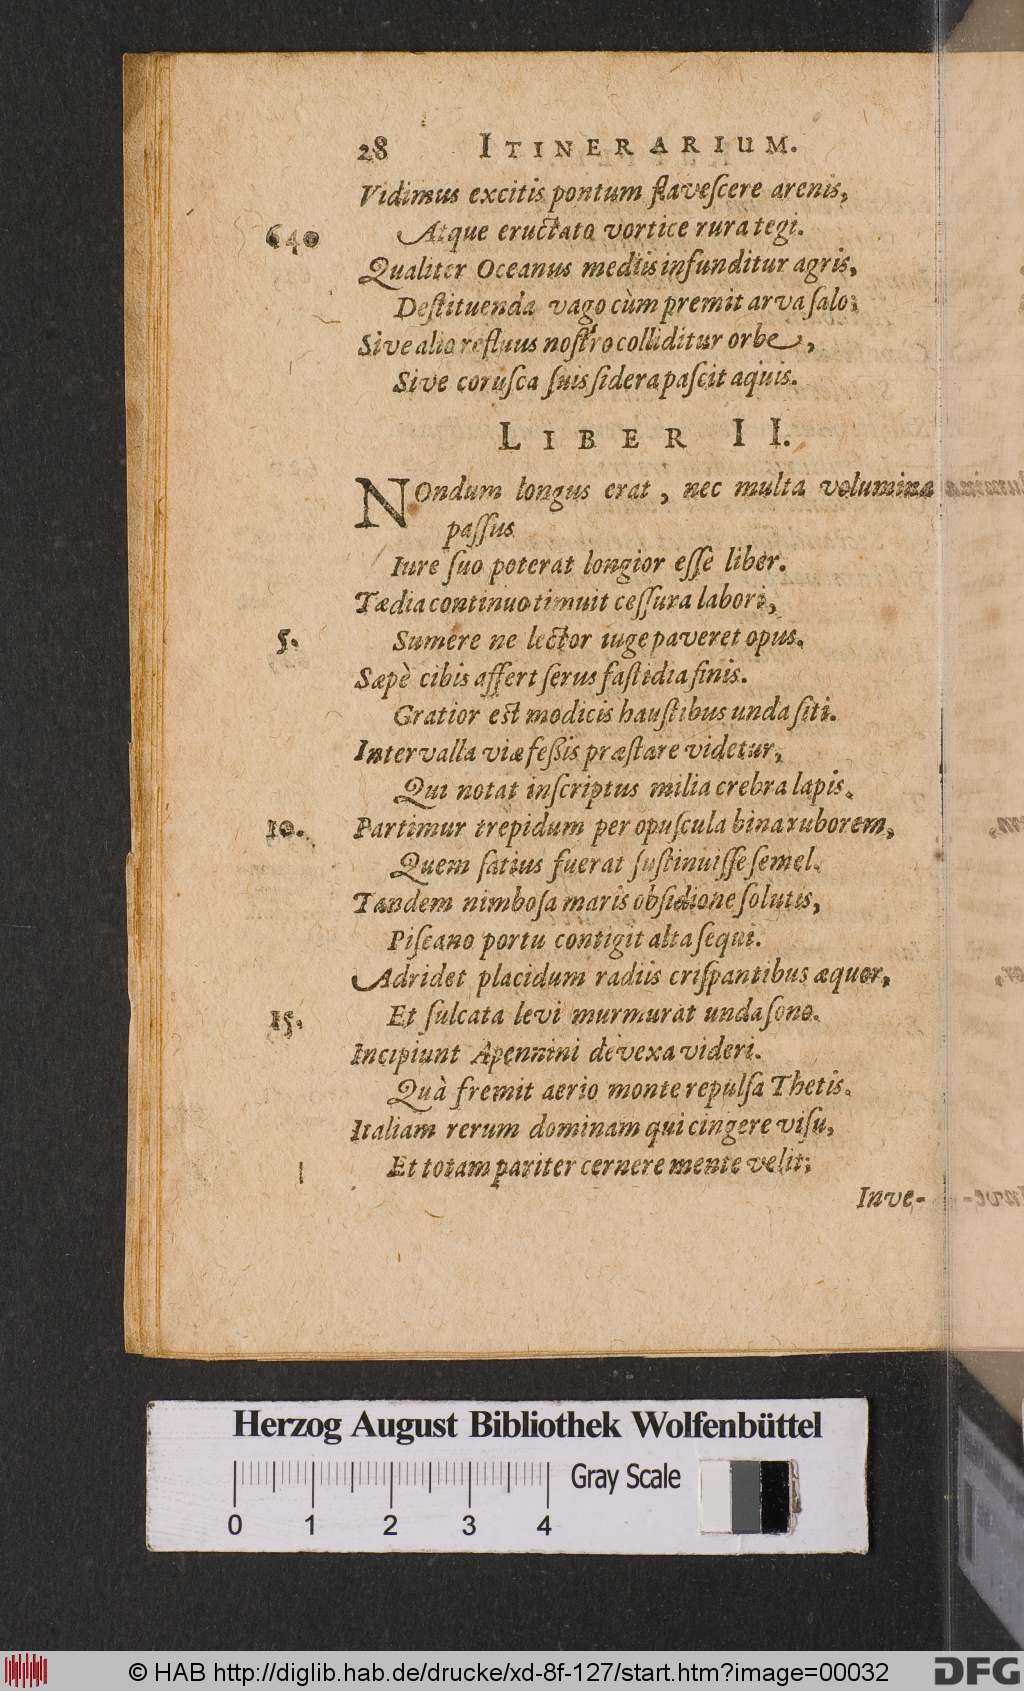 28 ITINERARIUM.
Vidimus excitis pontum flaveſcere arenis,
640 Atque eructato vortice rura tegi.
Qualiter Oceanus mediis infunditur agris,
Deſtituenda vago cùm premit arva ſalo;
Sive alio refluus noſtro colliditur orbe,
Sive coruſca ſuis ſidera paſcit aquis.
LIBER II.
NOndum longus erat, nec multa volumina
paſſus
Iure ſuo poterat longior eſſe liber.
Tædia continuo timuit ceſſura labori,
5. Sumere ne lector iuge paveret opus.
Sæpè cibis affert ſerus faſtidia finis.
Gratior eſt modicis hauſtibus unda ſiti.
Intervalla viæ feßis præſtare videtur,
Qui notat inſcriptus milia crebra lapis.
10. Partimur trepidum per opuſcula bina ruborem,
Quem ſatius fuerat ſuſtinuiſſe ſemel.
Tandem nimboſa maris obſidione ſolutis,
Piſeano portu contigit alta ſequi.
Adridet placidum radiis criſpantibus æquor,
15. Et ſulcata levi murmurat unda ſono.
Incipiunt Apennini devexa videri.
Quà fremit aerio monte repulſa Thetis.
Italiam rerum dominam qui cingere viſu,
Et totam pariter cernere mente velit;
Inve-
Herzog August Bibliothek Wolfenbüttel
0 1 2 3 4 Gray Scale
© HAB http://diglib.hab.de/drucke/xd-8f-127/start.htm?image=00032 DFG